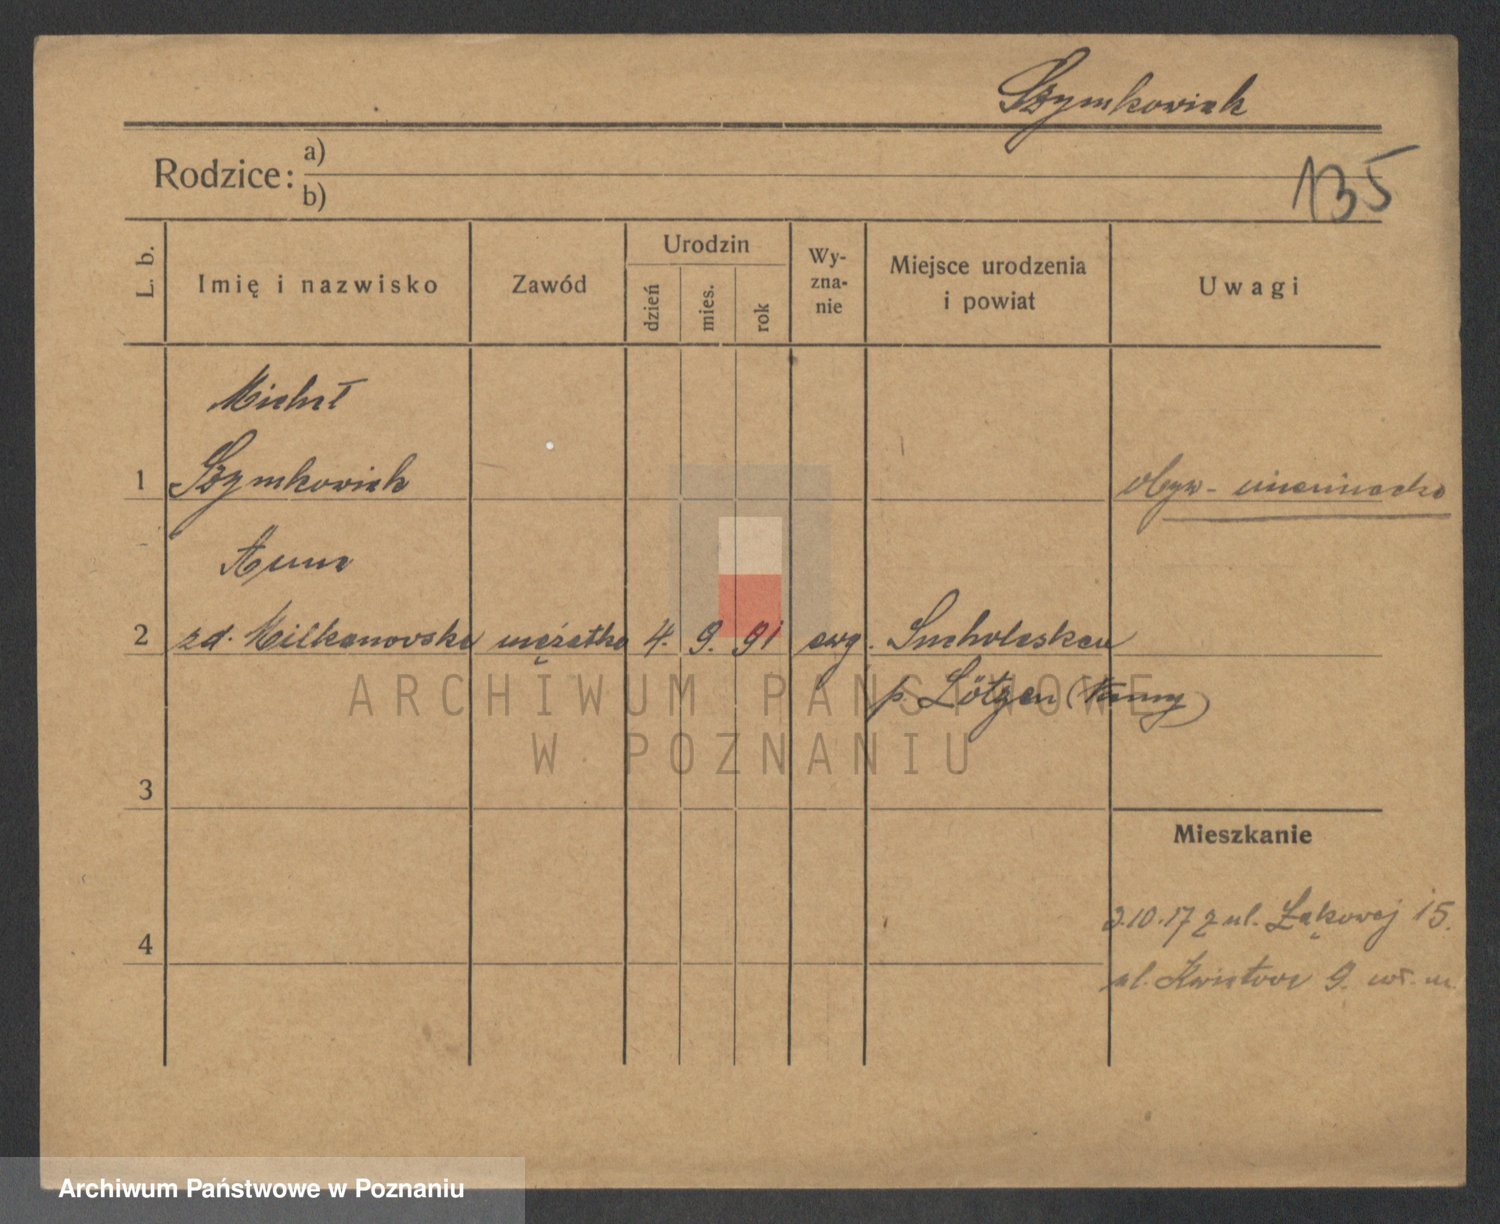 Szymkowiak
Rodzice: a)
b)
135
L. b.
Imię i nazwisko
Zawód
Urodzin
dzień
mies.
rok
Wy-
zna-
nie
Miejsce urodzenia
i powiat
Uwagi
Michał
1 Szymkowiak
obyw. niemiecka
Anna
2 zd. Milkanovska mężatka 4. 9. 91 ewg. Sucholasken
p. Lötzen
ARCHIWUM PAŃSTWOWE
W POZNANIU
3
Mieszkanie
3.10.17 z ul. Łąkowej 15.
4
ul. Kwiatowa 9.
Archiwum Państwowe w Poznaniu